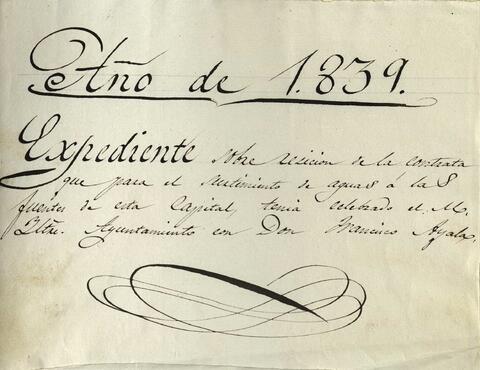 Año de 1.839.
Expediente sobre resicion de la contrata
que para el surtimiento de aguas á las
fuentes de esta Capital, tenia celebrado el M.
Iltre. Ayuntamiento con Don Francisco Ayala.